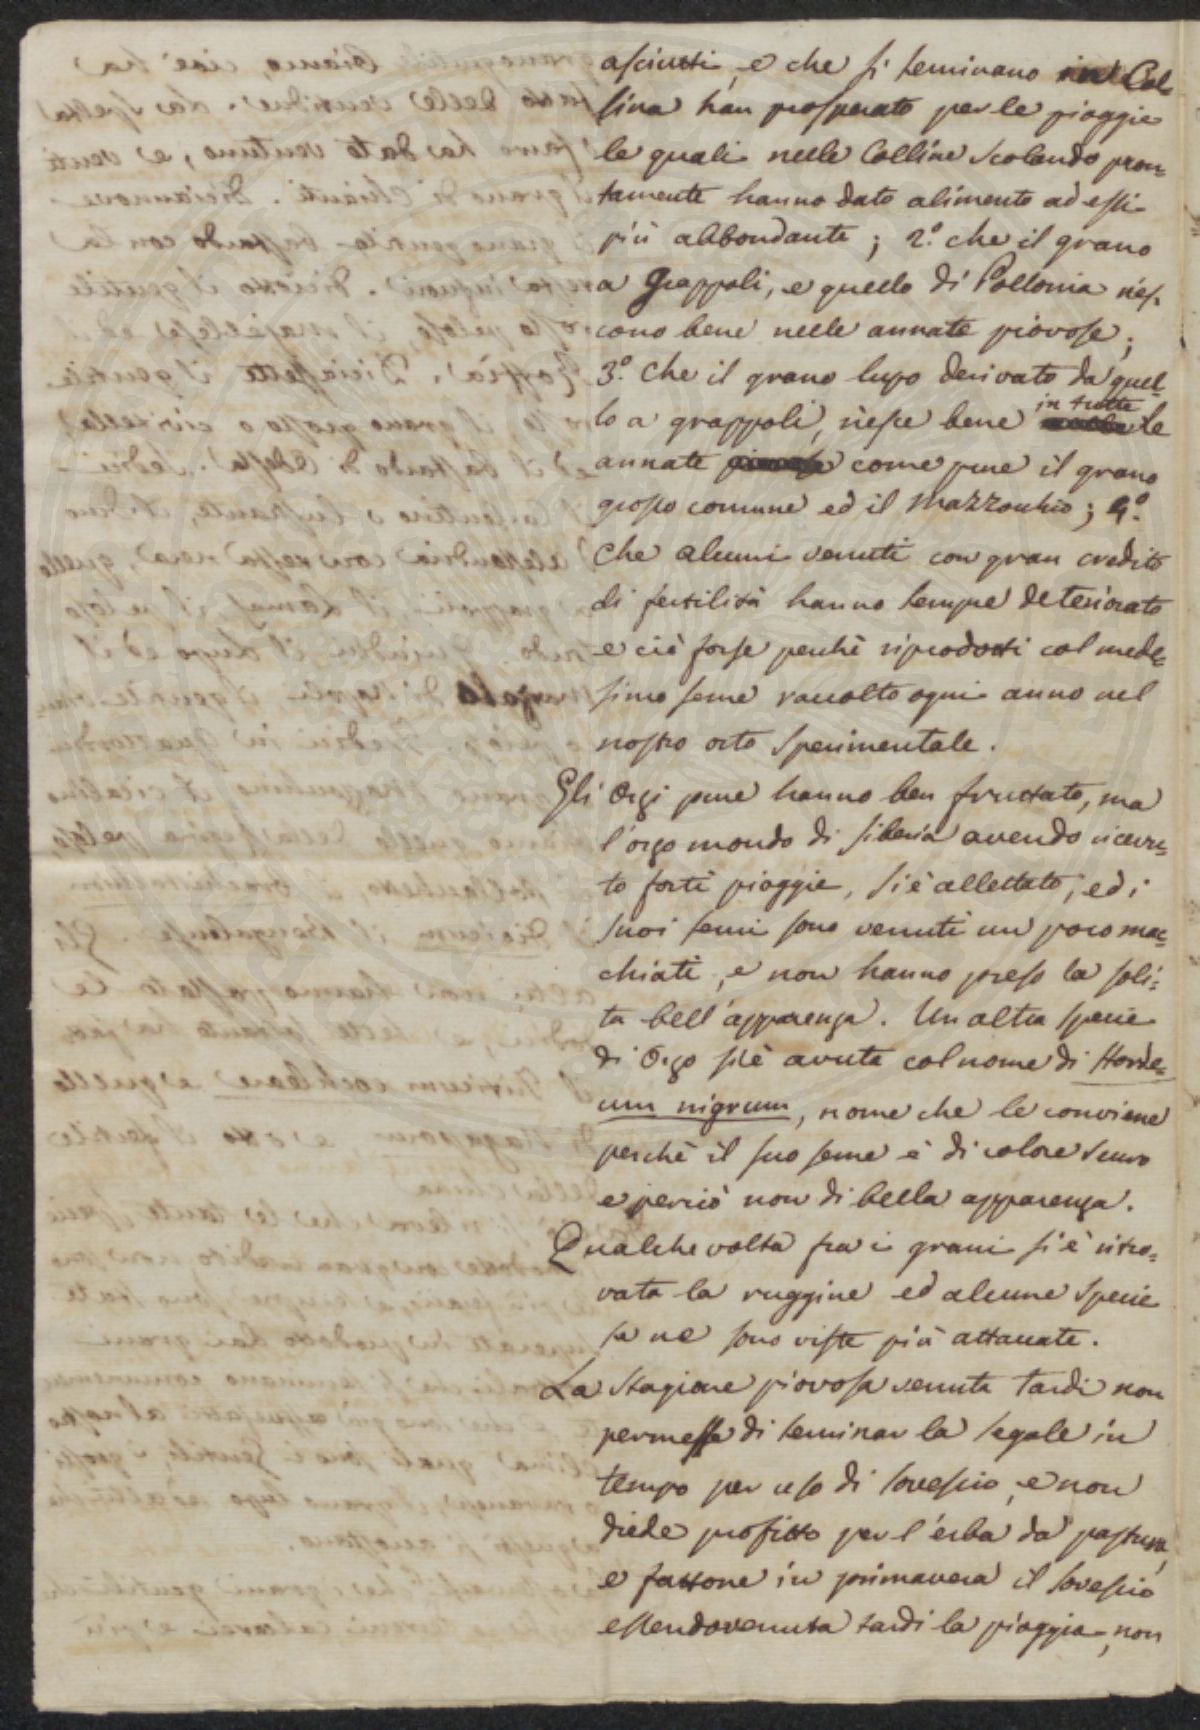 asciutti, e che si seminano in Col-
lina han prosperato per le pioggie
le quali nelle Colline scolando pron=
tamente hanno dato alimento ad essi
più abbondante; 2.° che il grano
a Grappoli, e quello di Pollonia ries-
cono bene nelle annate piovose;
3.° Che il grano lupo derivato da quel=
lo a grappoli, riesce bene in tutte le
annate come pure il grano
grosso comune ed il Mazzocchio; 4.°
Che alcuni venuti con gran credito
di fertilità hanno sempre deteriorato
e ciò forse perchè riprodotti col mede=
simo seme raccolto ogni anno nel
nostro orto Sperimentale.
Gli Orzi pure hanno ben fruttato, ma
l'orzo mondo di Siberia avendo ricevu=
to forti pioggie, si è allettato, ed i
suoi semi sono venuti un poco mac=
chiati, e non hanno preso la soli=
ta bell'apparenza. Un altra specie
di Orzo si è avuta col nome di Horde=
um nigrum, nome che le conviene
perchè il suo seme è di colore scuro
e perciò non di bella apparenza.
Qualche volta fra i grani si è ritro=
vata la ruggine ed alcune specie
se ne sono viste più attaccate.
La Stagione piovosa venuta tardi non
permesse di seminar la segale in
tempo per uso di sovescio, e non
diede profitto per l'erba da pastura,
e fattone in primavera il sovescio
essendo venuta tardi la pioggia, non